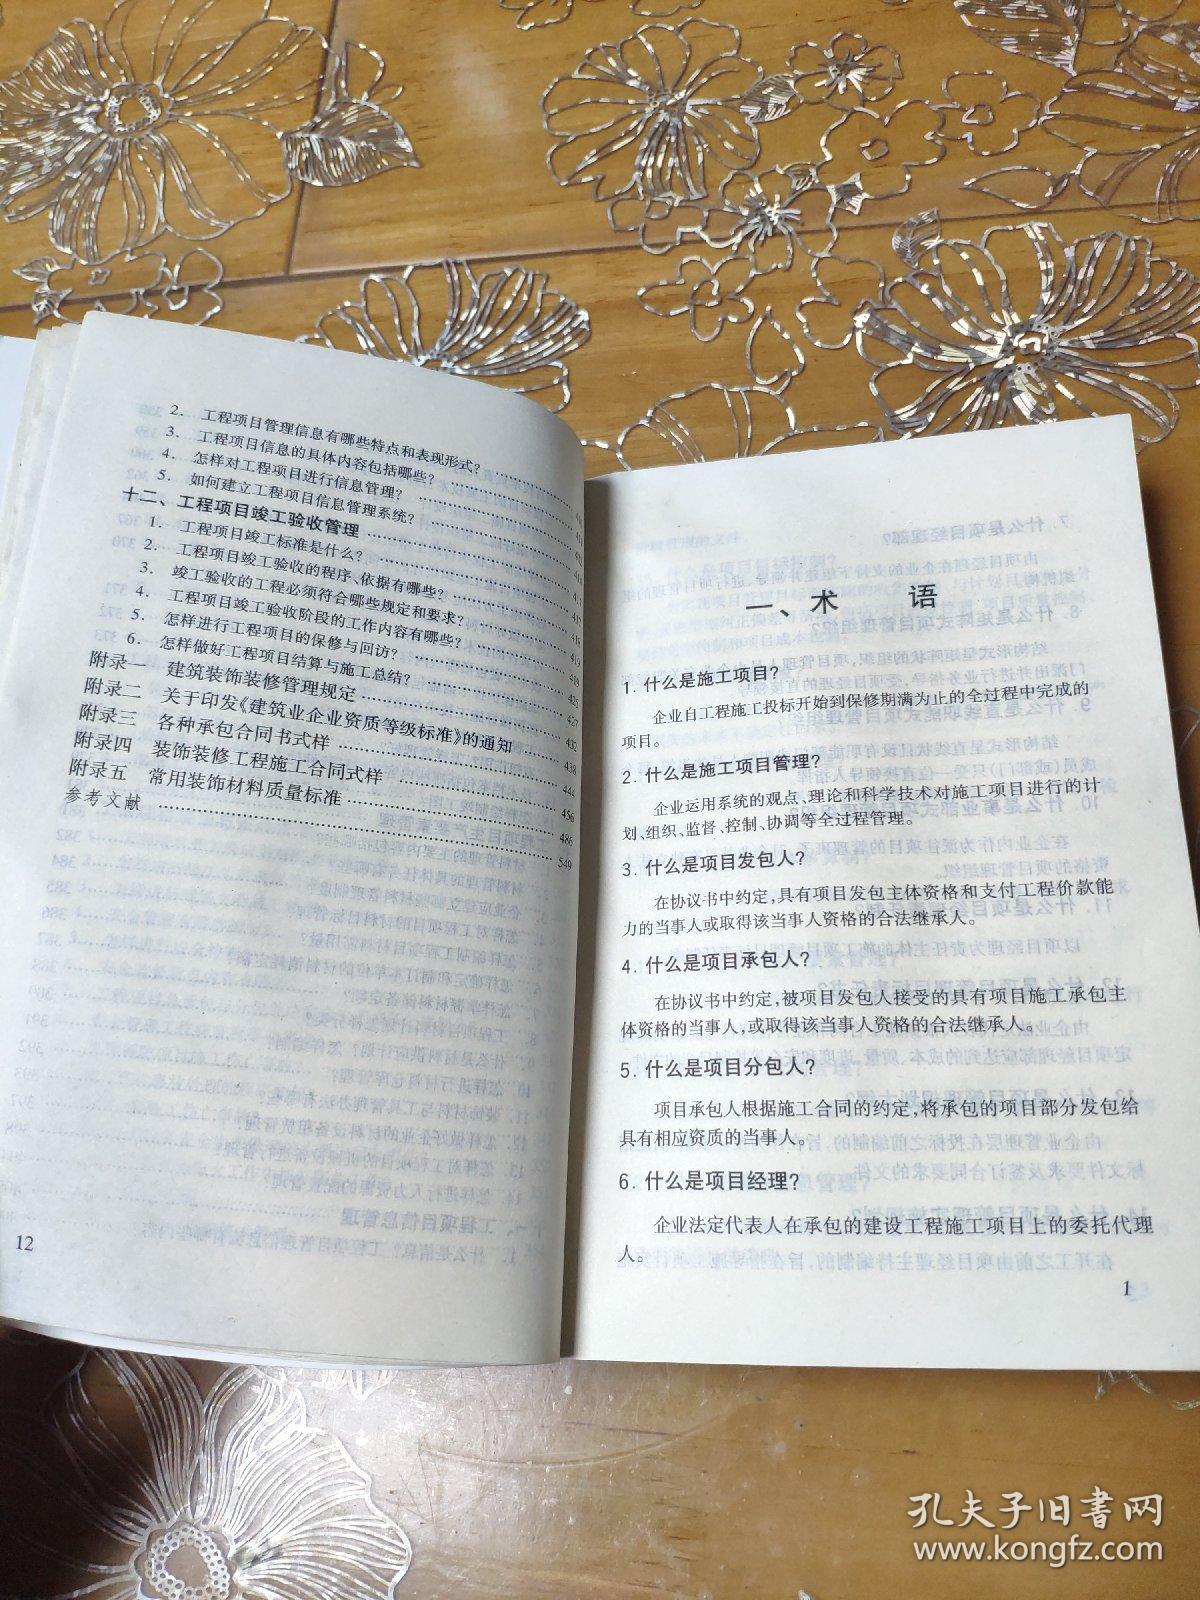 2. 工程项目管理信息有哪些特点和表现形式?
3. 工程项目信息的具体内容包括哪些?
4. 怎样对工程项目进行信息管理?
5. 如何建立工程项目信息管理系统?
十二、工程项目竣工验收管理
1. 工程项目竣工标准是什么?
2. 工程项目竣工验收的程序、依据有哪些?
3. 竣工验收的工程必须符合哪些规定和要求?
4. 工程项目竣工验收阶段的工作内容有哪些?
5. 怎样进行工程项目的保修与回访?
6. 怎样做好工程项目结算与施工总结?
附录一 建筑装饰装修管理规定
附录二 关于印发《建筑业企业资质等级标准》的通知
附录三 各种承包合同书式样
附录四 装饰装修工程施工合同式样
附录五 常用装饰材料质量标准
参考文献
12
一、术 语
1. 什么是施工项目?
企业自工程施工投标开始到保修期满为止的全过程中完成的
项目。
2. 什么是施工项目管理?
企业运用系统的观点、理论和科学技术对施工项目进行的计
划、组织、监督、控制、协调等全过程管理。
3. 什么是项目发包人?
在协议书中约定,具有项目发包主体资格和支付工程价款能
力的当事人或取得该当事人资格的合法继承人。
4. 什么是项目承包人?
在协议书中约定,被项目发包人接受的具有项目施工承包主
体资格的当事人,或取得该当事人资格的合法继承人。
5. 什么是项目分包人?
项目承包人根据施工合同的约定,将承包的项目部分发包给
具有相应资质的当事人。
6. 什么是项目经理?
企业法定代表人在承包的建设工程施工项目上的委托代理
人。
1
孔夫子旧书网
www.kongfz.com